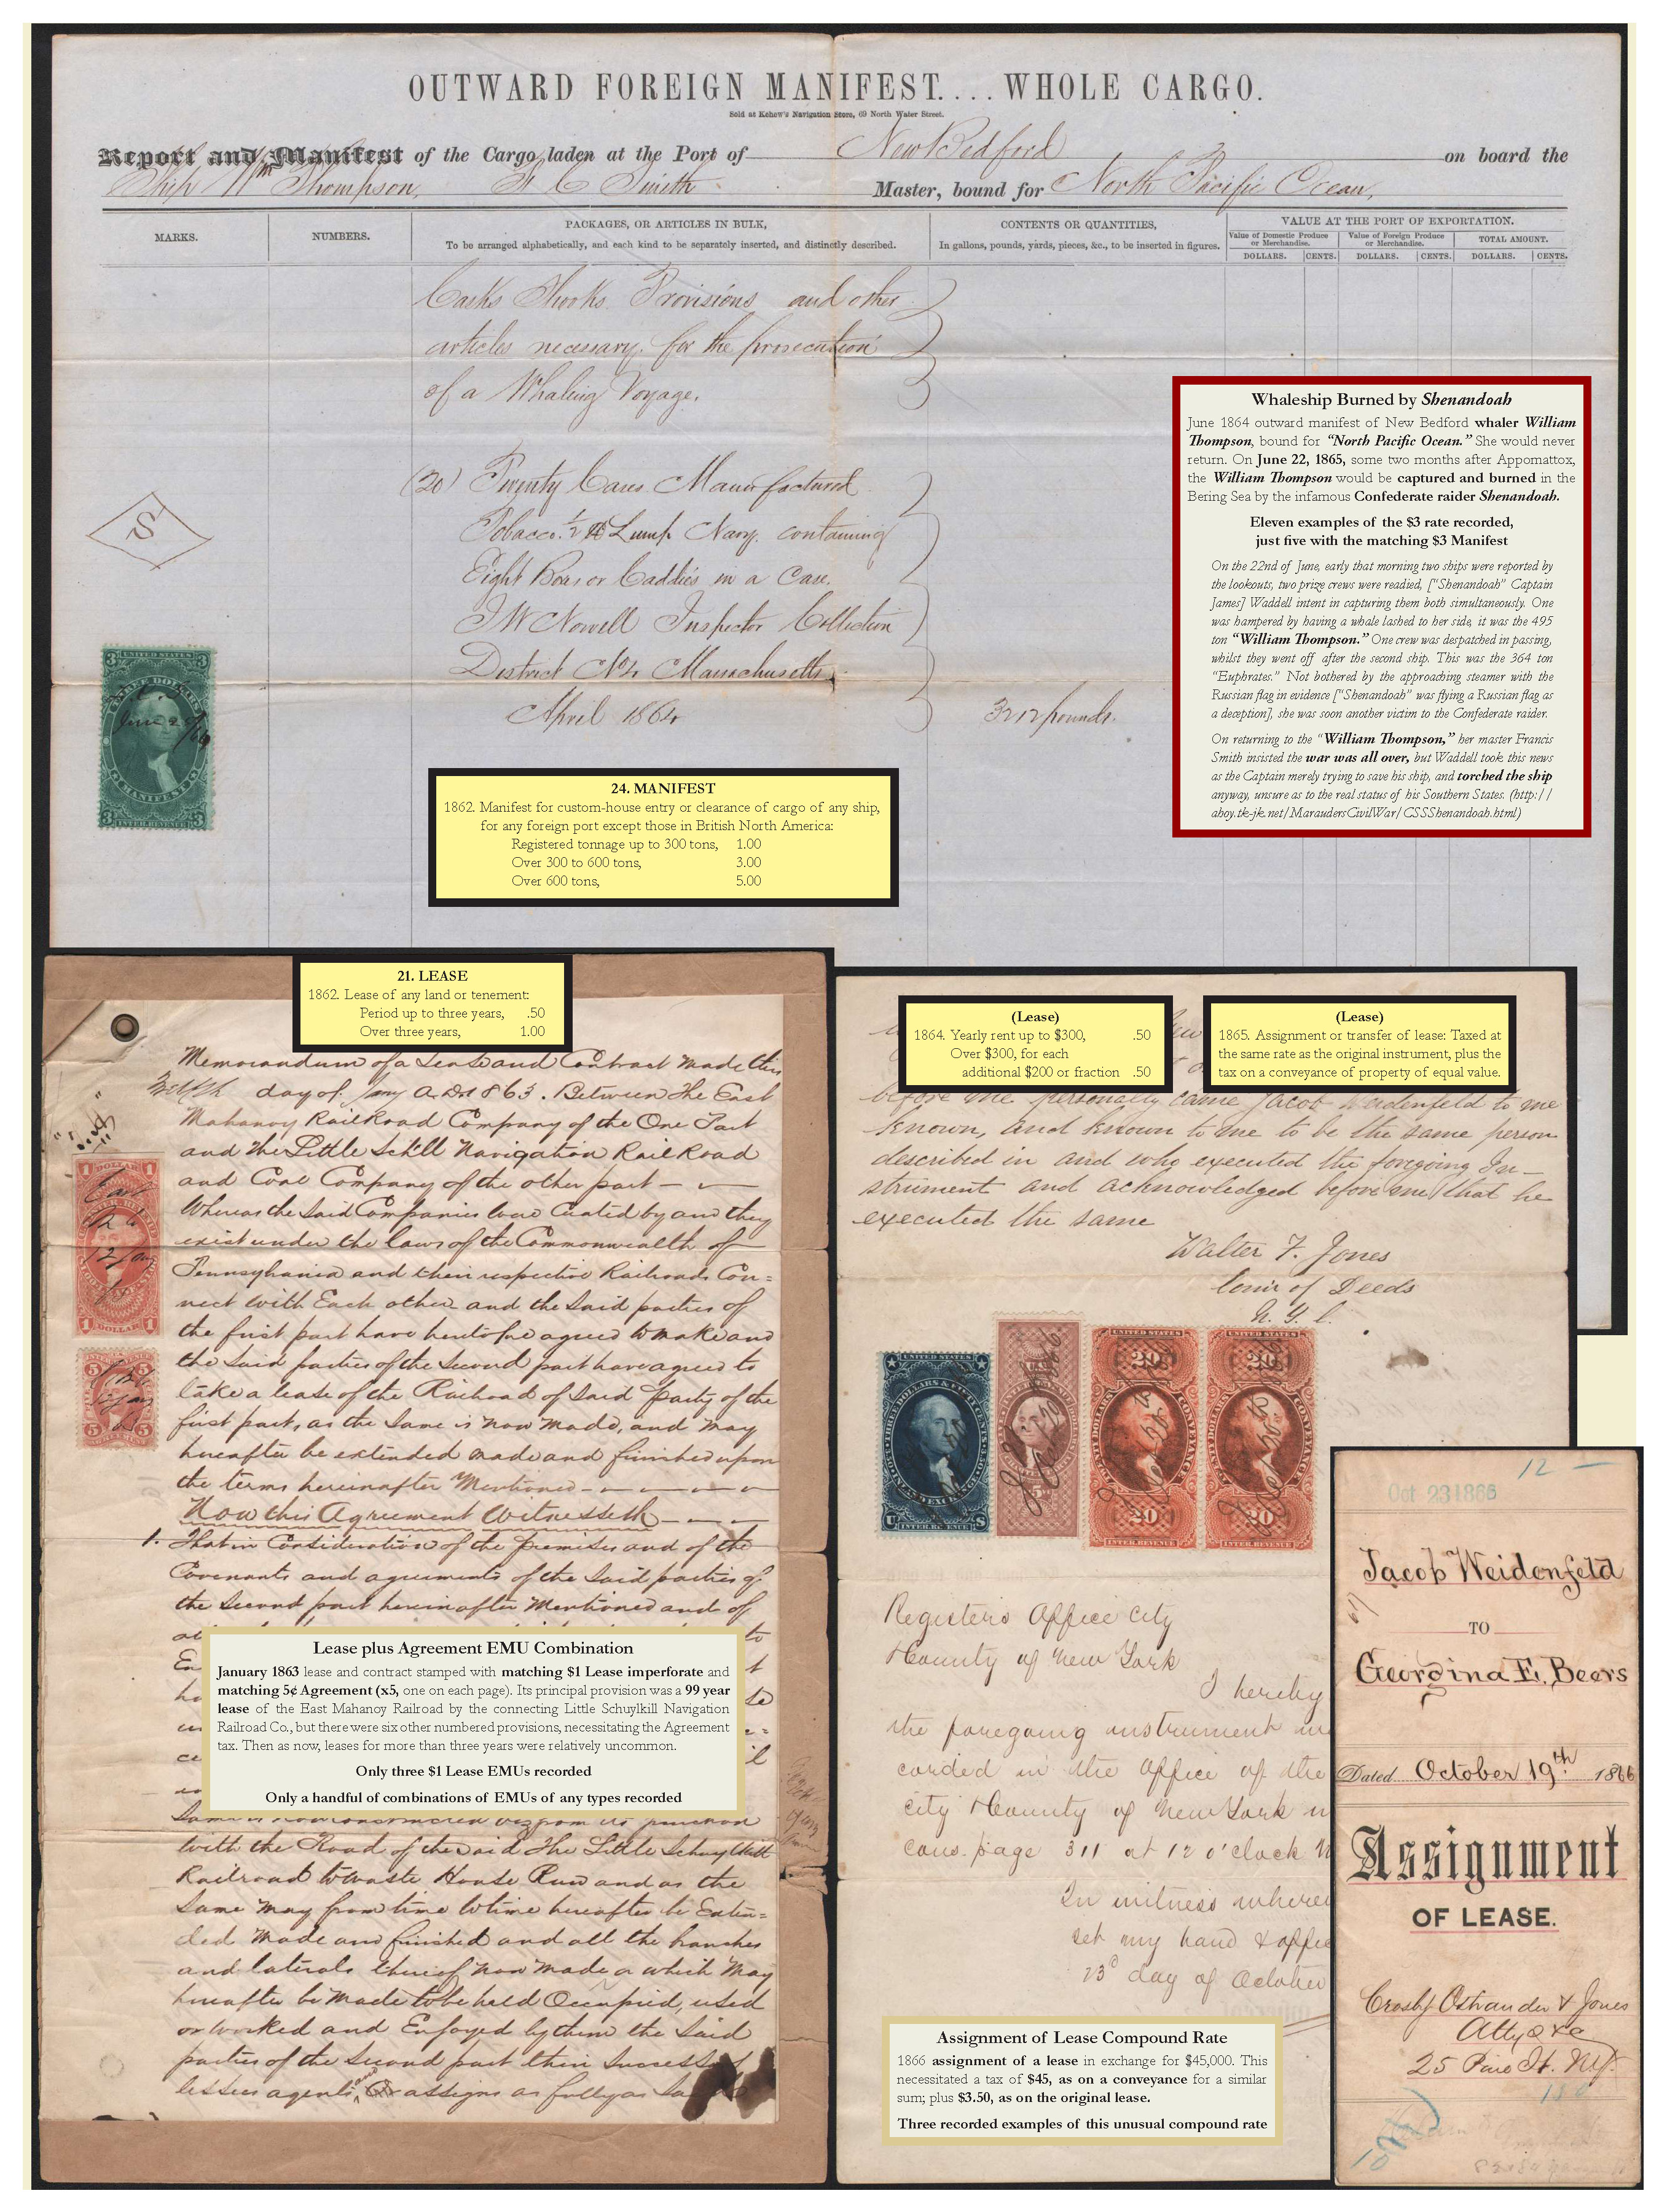 OUTWARD FOREIGN MANIFEST....WHOLE CARGO.
Sold at Kehew's Navigation Store, 69 North Water Street.
Report and Manifest of the Cargo laden at the Port of New Bedford on board the
Ship Wm Thompson, F C Smith Master, bound for North Pacific Ocean,
MARKS.
NUMBERS.
PACKAGES, OR ARTICLES IN BULK,
To be arranged alphabetically, and each kind to be separately inserted, and distinctly described.
CONTENTS OR QUANTITIES,
In gallons, pounds, yards, pieces, &c., to be inserted in figures.
VALUE AT THE PORT OF EXPORTATION.
Value of Domestic Produce or Merchandise.
Value of Foreign Produce or Merchandise.
TOTAL AMOUNT.
DOLLARS. CENTS. DOLLARS. CENTS. DOLLARS. CENTS.
Casks Shooks Provisions and other
articles necessary for the prosecution
of a Whaling Voyage.
(20) Twenty Cases Manufactured
Tobacco. 1/2 lb Lump Navy. containing
Eight Boxes or Caddies in a Case.
J W Nowell Inspector Collection
District No 1, Massachusetts,
April 1864 3212 pounds.
S
UNITED STATES
THREE DOLLARS
MANIFEST
INTER. REVENUE
Whaleship Burned by Shenandoah
June 1864 outward manifest of New Bedford whaler William
Thompson, bound for “North Pacific Ocean.” She would never
return. On June 22, 1865, some two months after Appomattox,
the William Thompson would be captured and burned in the
Bering Sea by the infamous Confederate raider Shenandoah.
Eleven examples of the $3 rate recorded,
just five with the matching $3 Manifest
On the 22nd of June, early that morning two ships were reported by
the lookouts, two prize crews were readied, [“Shenandoah” Captain
James] Waddell intent in capturing them both simultaneously. One
was hampered by having a whale lashed to her side, it was the 495
ton “William Thompson.” One crew was despatched in passing,
whilst they went off after the second ship. This was the 364 ton
“Euphrates.” Not bothered by the approaching steamer with the
Russian flag in evidence [“Shenandoah” was flying a Russian flag as
a deception], she was soon another victim to the Confederate raider.
On returning to the “William Thompson,” her master Francis
Smith insisted the war was all over, but Waddell took this news
as the Captain merely trying to save his ship, and torched the ship
anyway, unsure as to the real status of his Southern States. (http://
ahoy.tk-jk.net/MaraudersCivilWar/CSSShenandoah.html)
24. MANIFEST
1862. Manifest for custom-house entry or clearance of cargo of any ship,
for any foreign port except those in British North America:
Registered tonnage up to 300 tons, 1.00
Over 300 to 600 tons, 3.00
Over 600 tons, 5.00
21. LEASE
1862. Lease of any land or tenement:
Period up to three years, .50
Over three years, 1.00
Memorandum of a Lease and Contract made this
Twelfth day of Jany A.D. 1863. Between the East
Mahanoy RailRoad Company of the One Part
and the Little Schll Navigation Rail Road
and Coal Company of the other part
Whereas the Said Companies were Created by and they
exist under the laws of the Commonwealth of
Pennsylvania and their respective Railroads Con=
nect with Each other and the Said parties of
the first part have heretofore agreed to make and
the Said parties of the Second part have agreed to
take a lease of the Railroad of Said Party of the
first part, as the Same is now made, and may
hereafter be extended made and finished upon
the terms hereinafter Mentioned
Now this Agreement Witnesseth
1. That in Consideration of the premises and of the
Covenants and agreements of the Said parties of
the Second part hereinafter Mentioned and of
Lease plus Agreement EMU Combination
January 1863 lease and contract stamped with matching $1 Lease imperforate and
matching 5¢ Agreement (x5, one on each page). Its principal provision was a 99 year
lease of the East Mahanoy Railroad by the connecting Little Schuylkill Navigation
Railroad Co., but there were six other numbered provisions, necessitating the Agreement
tax. Then as now, leases for more than three years were relatively uncommon.
Only three $1 Lease EMUs recorded
Only a handful of combinations of EMUs of any types recorded
with the Road of the Said The Little Schuylkill
Railroad to Waste House Run and as the
Same may from time to time hereafter be Exten=
ded Made and finished and all the branches
and laterals thereof now made or which May
hereafter be made to be held Occupied, used
or worked and Enjoyed by them the Said
parties of the Second part their Successors
lessees agents or assigns as fully as
(Lease)
1864. Yearly rent up to $300, .50
Over $300, for each
additional $200 or fraction .50
(Lease)
1865. Assignment or transfer of lease: Taxed at
the same rate as the original instrument, plus the
tax on a conveyance of property of equal value.
before me personally came Jacob Weidenfeld to me
known, and known to me to be the same person
described in and who executed the foregoing In-
strument and acknowledged before me that he
executed the same
Walter F. Jones
Comr of Deeds
N. Y. C.
Registers Office City
& County of New York
I hereby
the foregoing instrument
corded in the Office of the
city & County of New York
cons. page 311 at 12 o'clock
In witness where
set my hand & offic
23d day of October
Assignment of Lease Compound Rate
1866 assignment of a lease in exchange for $45,000. This
necessitated a tax of $45, as on a conveyance for a similar
sum; plus $3.50, as on the original lease.
Three recorded examples of this unusual compound rate
12
Oct 23 1866
Jacob Weidenfeld
TO
Georgina E. Beers
Dated October 19th 1866
Assignment
OF LEASE.
Crosby Ostrander & Jones
Attys &c
25 Pine St. N.Y.